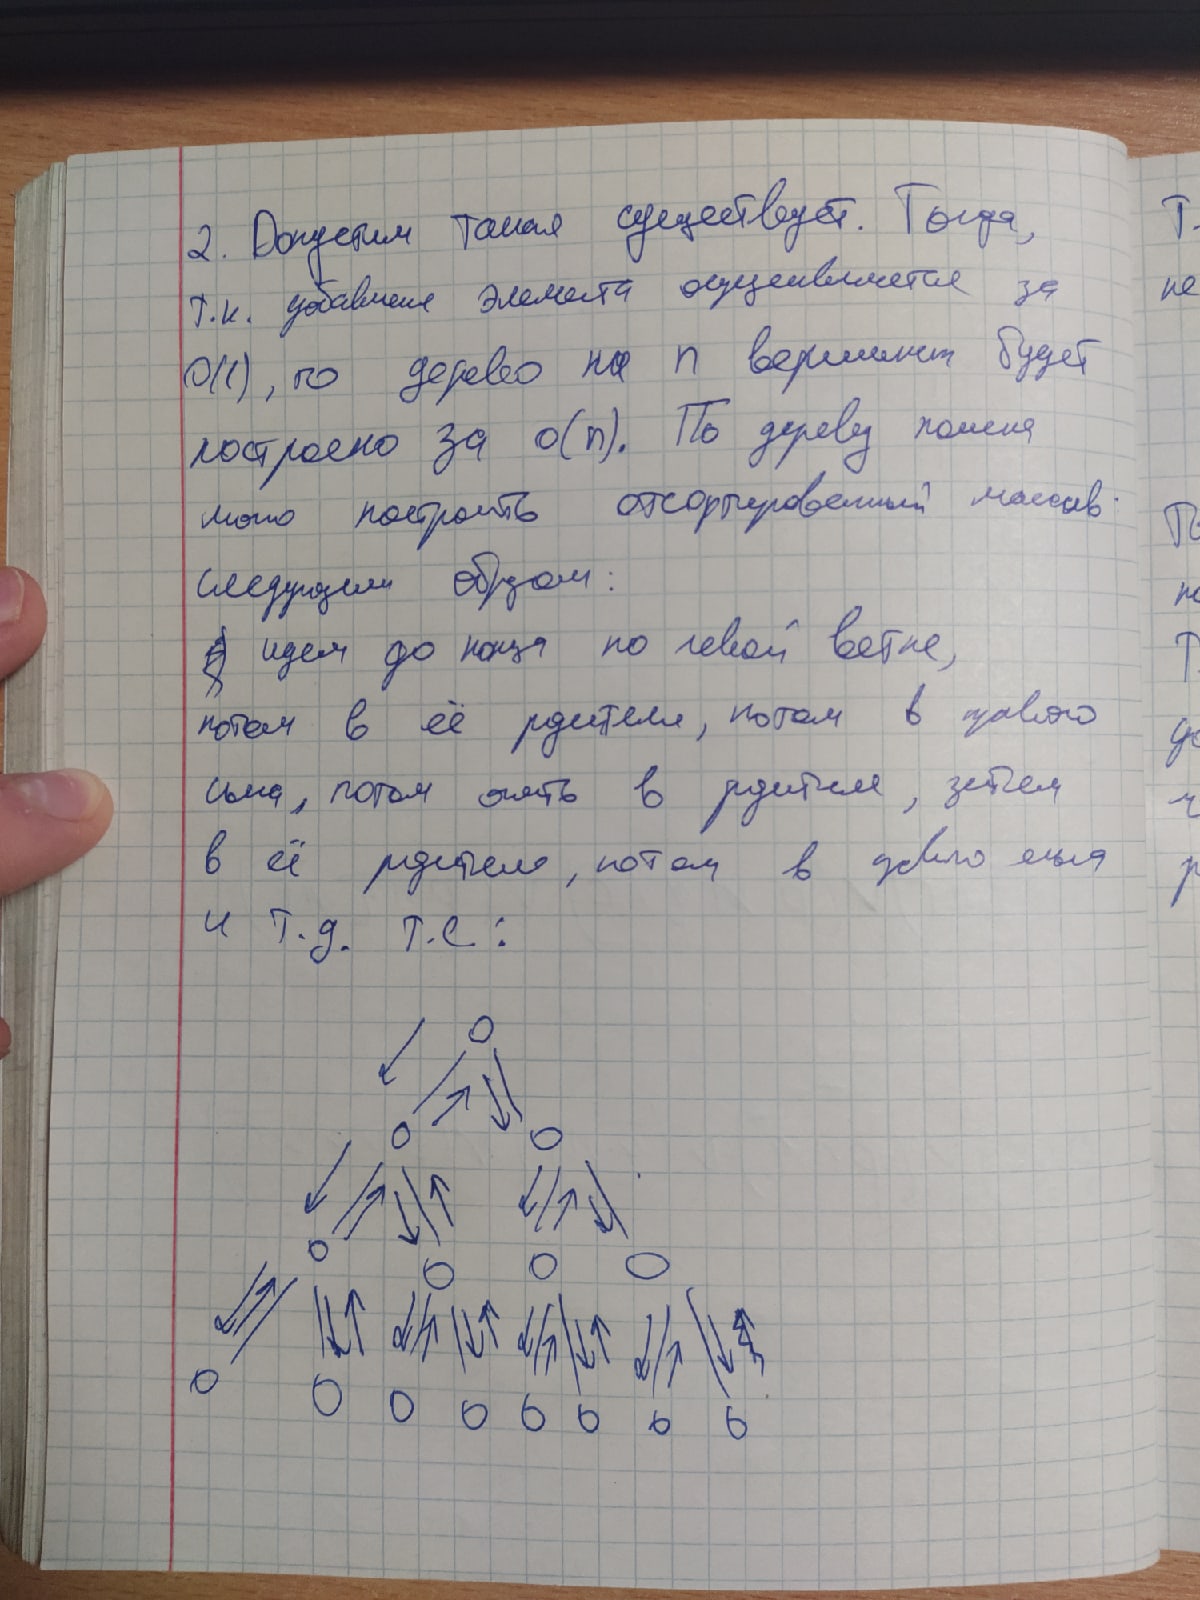 2. Допустим такая существует. Тогда,
т.к. добавление элемента осуществляется за
O(1), то дерево на n вершинах будет
построено за O(n). По дереву поиска
можно построить отсортированный массив
следующим образом:
идем до конца по левой ветке,
потом в её родителя, потом в правого
сына, потом опять в родителя, затем
в её родителя, потом в правого сына
и т.д. т.е.:
Т.
не